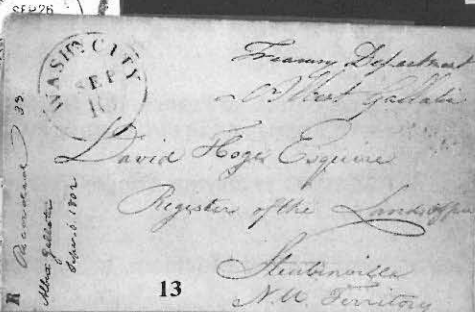 SEP 26
WASH. CITY
SEP
Treasury Department
Albert Gallatin
David Hoge Esquire
Register of the Land Office
Steubenville
N.W. Territory
Recorded 39
Albert Gallatin
Septr. 6. 1802
R
13